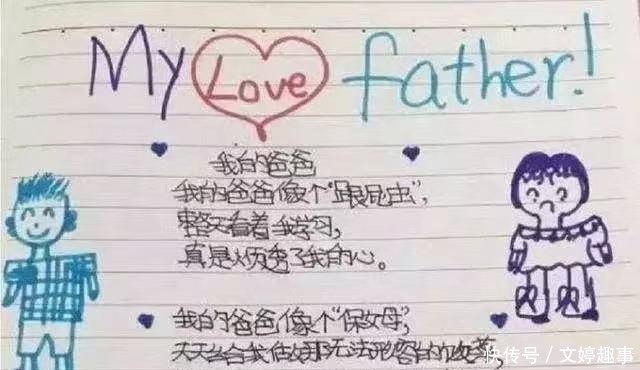 My Love father!
我的爸爸
我的爸爸像个"跟屁虫",
整天看着我学习,
真是烦透了我的心。
我的爸爸像个"保女母",
天天给我做那无法形容的饭菜,
快传号／文婷趣事